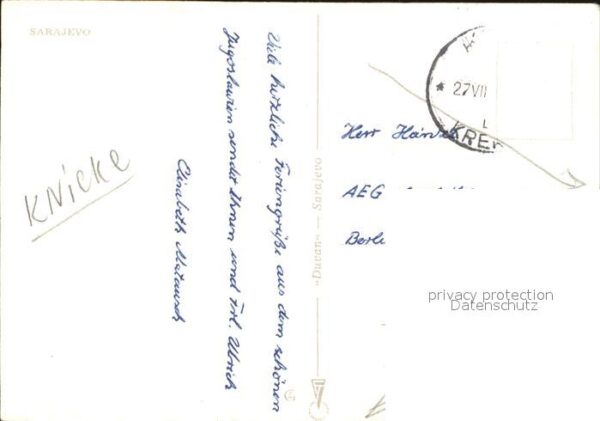 SARAJEVO
Knicke
Viele herzliche Feriengrüße aus dem schönen
Jugoslawien sendet Ihnen und Frl. Ulrich
Elisabeth
"Duvan" — Sarajevo
27 VII
KRE
Herr
AEG
Berl
privacy protection
Datenschutz